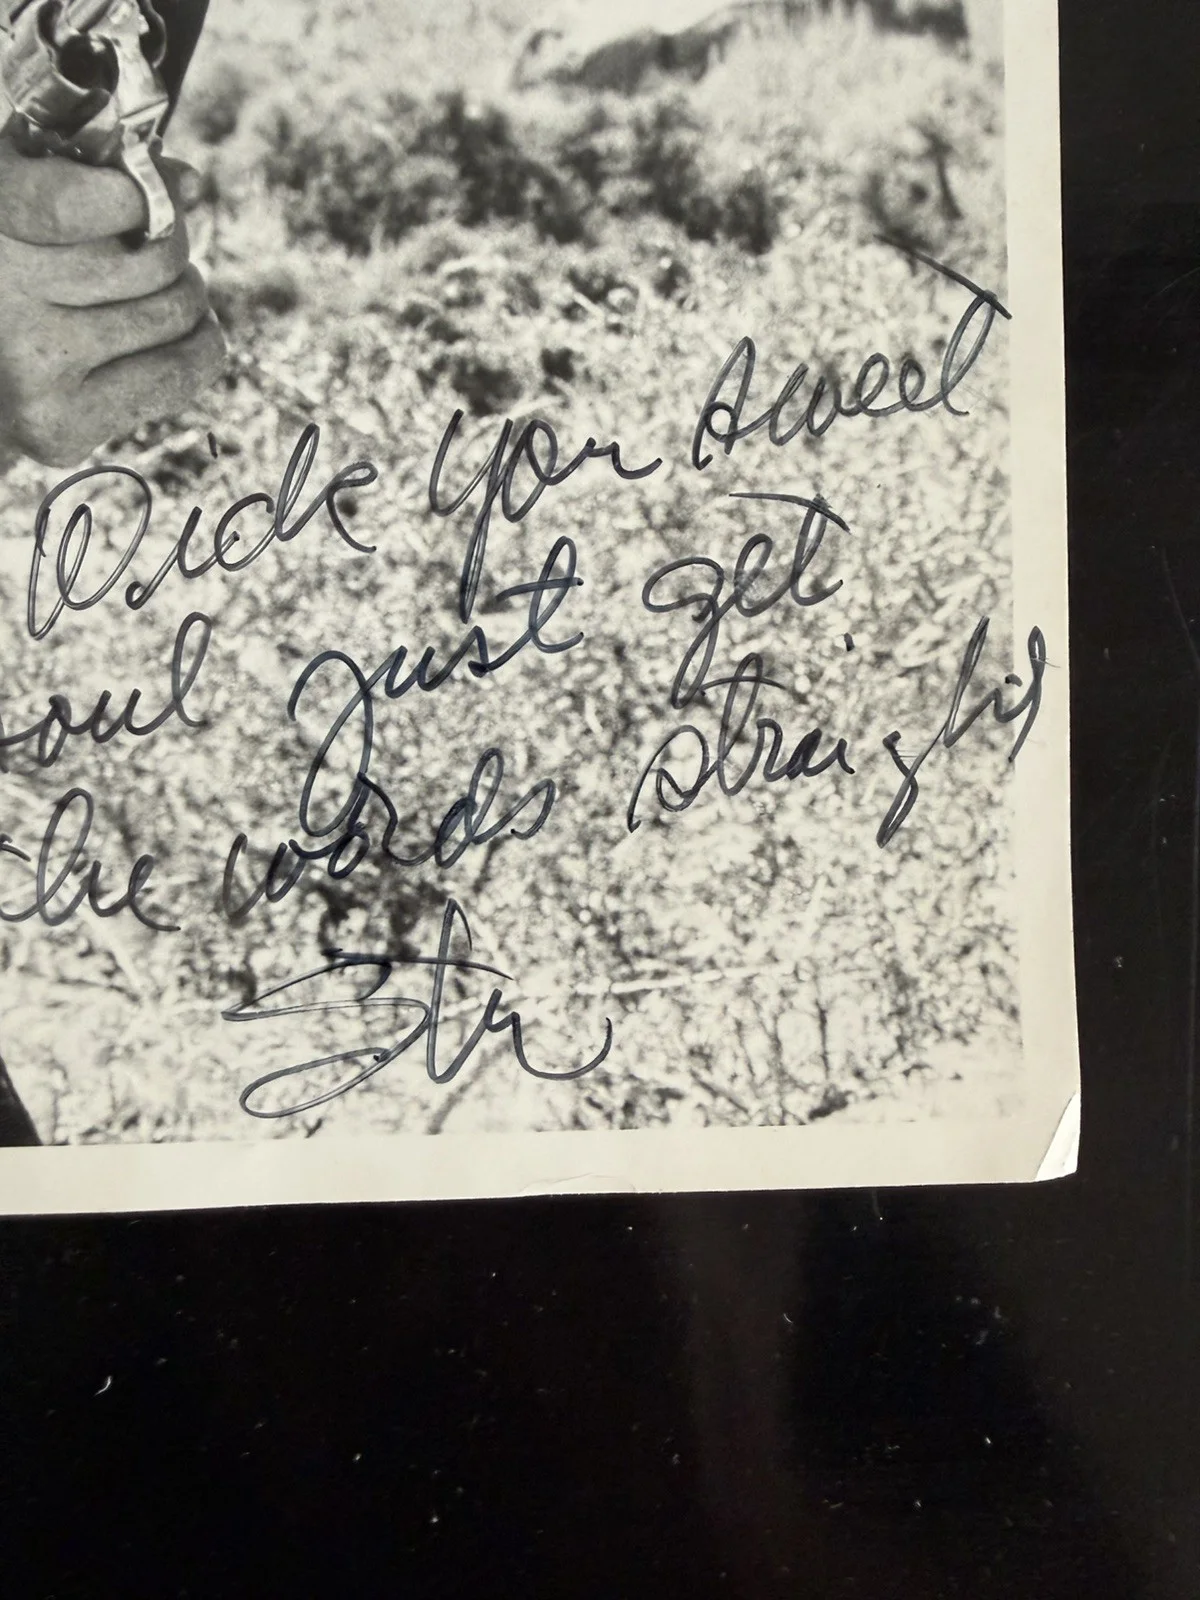 Dick you sweet
soul just get
the words straight